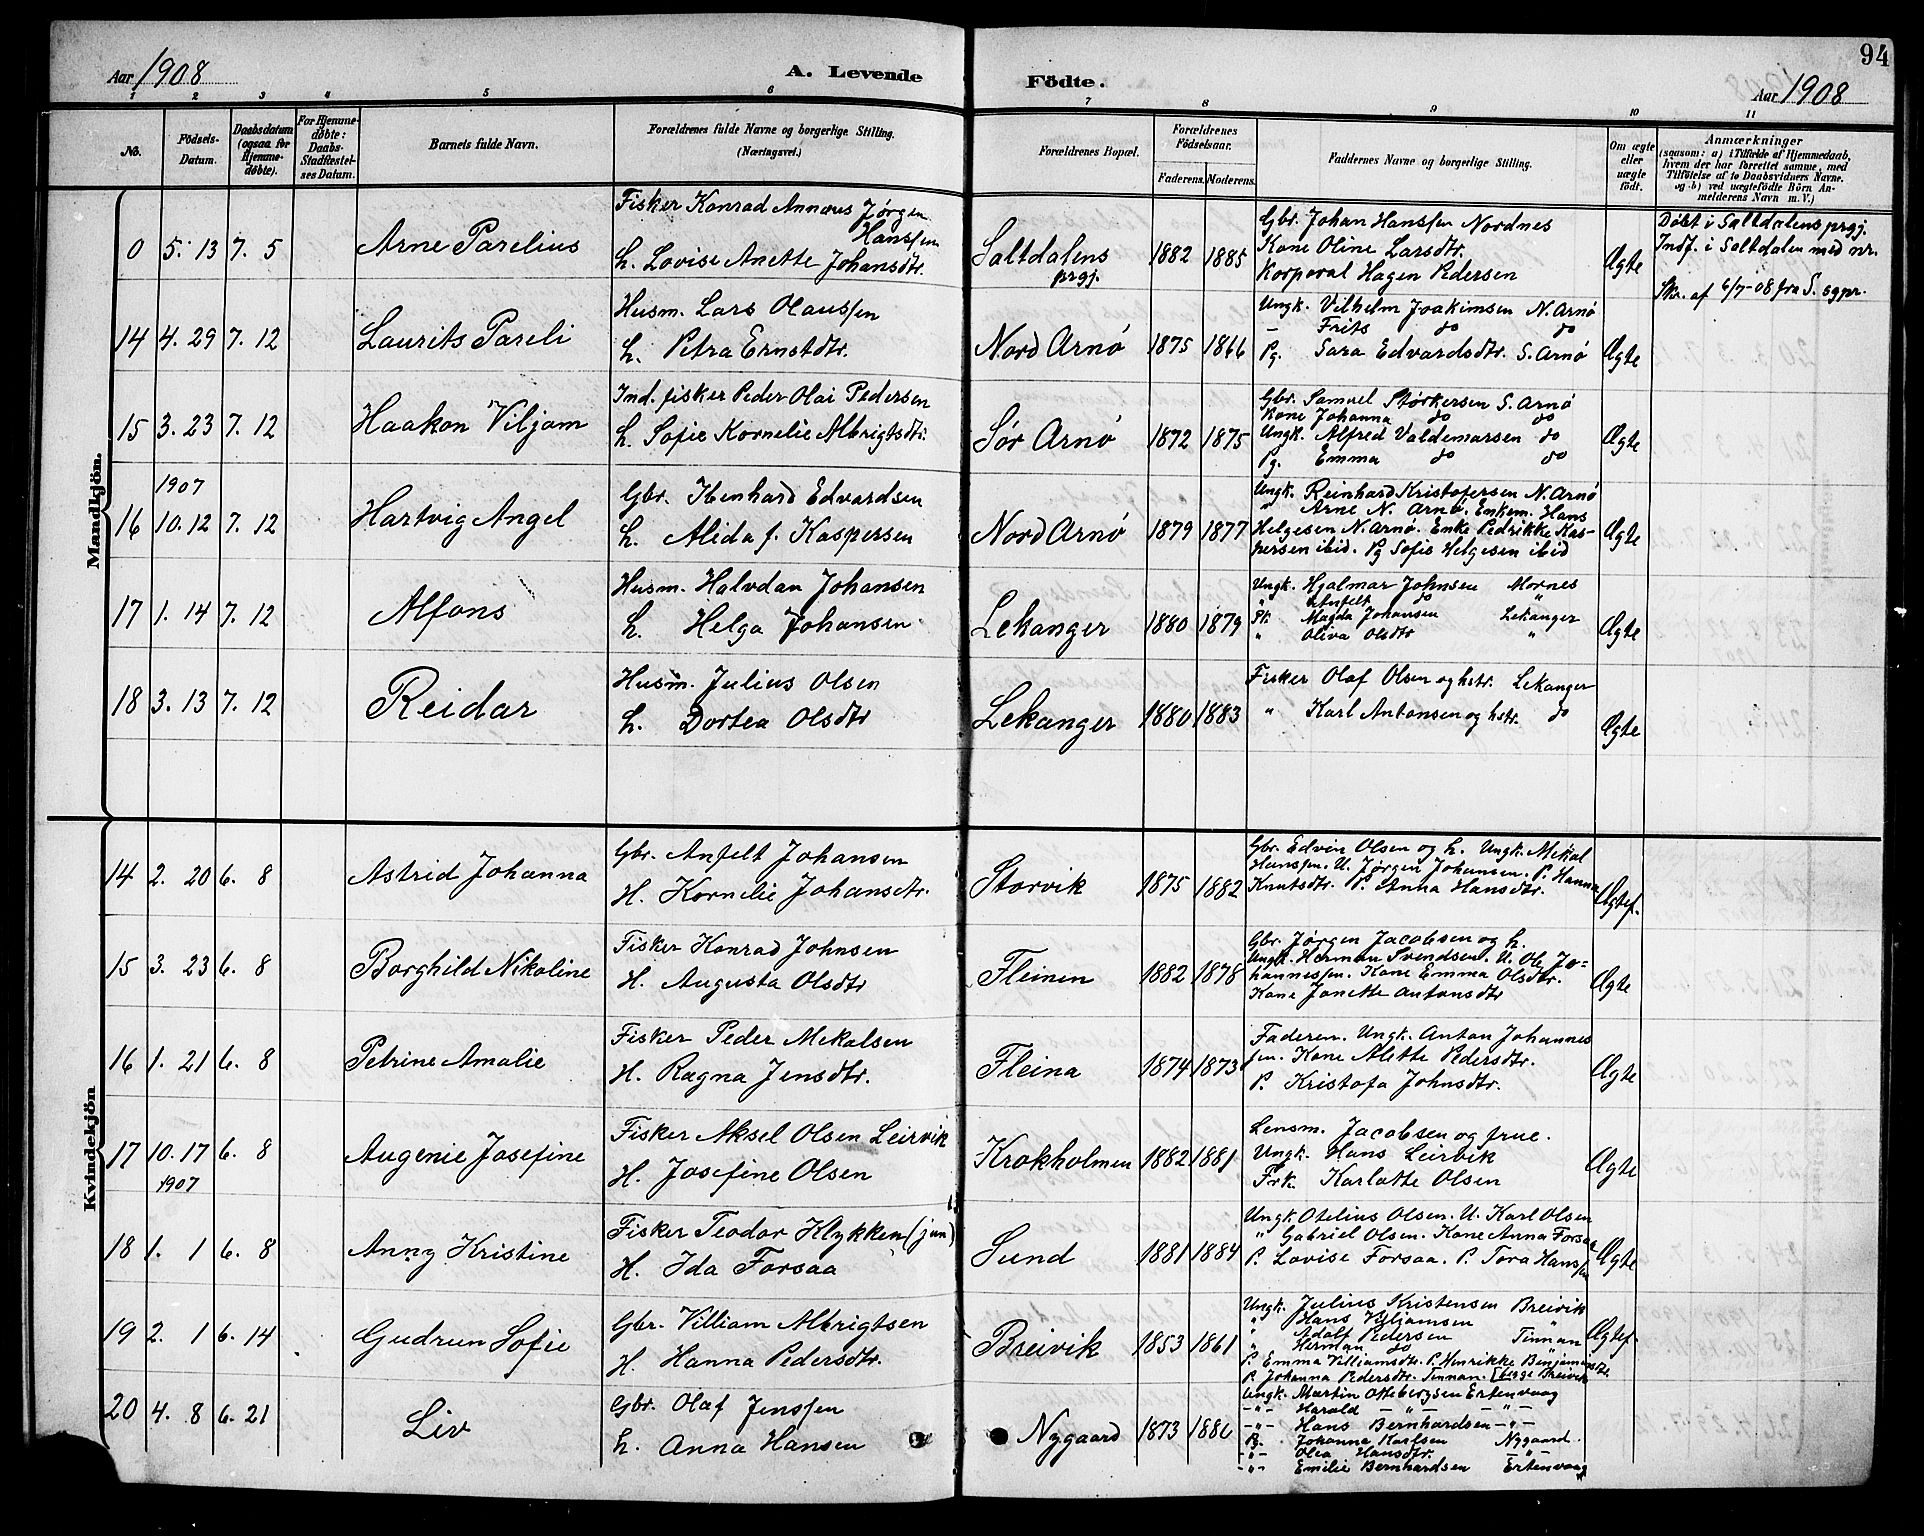 94
Aar 1908
A. Levende Födte.
Aar 1908
1 2 3 4 5 6 7 8 9 10 11
No.
Födsels-
Datum.
Daabsdatum
(ogsaa for
Hjemme-
døbte).
For Hjemme-
døbte:
Daabs-
Stadfæstel-
ses Datum.
Barnets fulde Navn.
Forældrenes fulde Navne og borgerlige Stilling.
(Næringsvei.)
Forældrenes Bopæl.
Forældrenes
Födselsaar.
Faderens. Moderens.
Faddernes Navne og borgerlige Stilling.
Om ægte
eller
uægte
födt.
Anmærkninger
(saasom: a) i Tilfælde af Hjemmedaab,
hvem der har forrettet samme, med
Tilföielse af to Daabsvidners Navne.
og b) ved uægtefödte Börn An-
melderens Navn m. V.)
Mandkjön.
0 5. 13 7. 5
Arne Parelius
Fisker Konrad Annæus Jørgen
Hanssen
h. Lovise Anette Johansdtr.
Saltdalens
prgj.
1882 1885
Gbr. Johan Hanssen Nordnes
Kone Oline Larsdtr.
Korporal Hagen Pedersen
Ægte
Døbt i Saltdalens prgj.
Indf. i Saltdalen med nr.
Skr. af 6/7-08 fra S. sgpr.
14 4. 29 7. 12
Laurits Pareli
Husm. Lars Olaussen
h. Petra Ernstdtr.
Nord Arnö
1875 1866
Ungk. Vilhelm Joakimsen N. Arnö
– Frits do do
Pg. Sara Edvardsdtr. S. Arnö
Ægte
15 3. 23 7. 12
Haakon Viljam
Ind. fisker Peder Olai Pedersen
h. Sofie Kornelie Albrigtsdtr.
Sör Arnö
1872 1875
Gbr. Samuel Størkersen S. Arnö
Kone Johanna do do
Ungk. Alfred Valdemarsen do
Pg. Emma do do
Ægte
1907
16 10. 12 7. 12
Hartvig Angel
Gbr. Ibenhard Edvardsen
h. Alida f. Kaspersen
Nord Arnö
1879 1877
Ungk. Reinhard Kristofersen N. Arnö
" Arne N. Arnö. Enkem. Hans
Helgesen N. Arnö. Enke Pedrikke Kas-
persen ibid. Pg Sofie Helgesen ibid
Ægte
17 1. 14 7. 12
Alfons
Husm. Halvdan Johansen
h. Helga Johansen
Lekanger
1880 1879
Ungk. Hjalmar Johnsen Mornes
" Anfelt do "
Pk. Magda Johansen Lekanger
" Oliva Olsdtr "
Ægte
18 3. 13 7. 12
Reidar
Husm. Julius Olsen
h. Dortea Olsdtr
Lekanger
1880 1883
Fisker Olaf Olsen og hstr. Lekanger
" Karl Antonsen og hstr. do
Ægte
Kvindekjön
14 2. 20 6. 8
Astrid Johanna
Gbr. Anfelt Johansen
H. Kornelie Johansdtr.
Storvik
1875 1882
Gbr. Edvin Olsen og h. Ungk. Mekal
Hanssen. U. Jørgen Johansen. P. Hanna
Knutsdtr. P. Anna Hansdtr.
Ægtef.
15 3. 23 6. 8
Borghild Nikoline
Fisker Konrad Johnsen
H. Augusta Olsdtr
Fleinen
1882 1878
Gbr. Jørgen Jacobsen og h.
Ungk. Herman Svendsen. U. Ole Jo-
hannessen. Kone Emma Olsdtr.
Kone Janette Antonsdtr
Ægte
16 1. 21 6. 8
Petrine Amalie
Fisker Peder Mekalsen
H. Ragna Jensdtr.
Fleina
1874 1873
Faderen. Ungk. Anton Johannes
sen. Kone Alette Pedersdtr.
P. Kristofa Johnsdtr.
Ægte
17 10. 17 6. 8
1907
Augenie Josefine
Fisker Aksel Olsen Leirvik
H. Josefine Olsen
Krokholmen
1882 1881
Lensm. Jacobsen og frue.
Ungk. Hans Leirvik
Frk. Karlotte Olsen
Ægte
18 1. 1 6. 8
Anny Kristine
Fisker Teodor Klykken (jun)
H. Ida Forsaa
Sund
1881 1884
Ungk. Otelius Olsen. U. Karl Olsen
" Gabriel Olsen. Kone Anna Forsaa
P. Lovise Forsaa. P. Tora Hanssen
Ægte
19 2. 1 6. 14
Gudrun Sofie
Gbr. Villiam Albrigtsen
H. Hanna Pedersdtr.
Breivik
1853 1861
Ungk. Julius Kristensen Breivik
" Hans Viljamsen "
" Adolf Pedersen Tinnan
" Herman do "
P. Emma Villiamsdtr. P. Henrikke Benjaminsdtr.
P. Johanna Pedersdtr. Tinnan. [begge Breivik
Ægtef.
20 4. 8 6. 21
Liv
Gbr. Olaf Jenssen
h. Anna Hansen
Nygaard
1873 1886
Ungk. Martin Ottebergsen Ertenvaag
-"- Harald – " – – " –
-"- Hans Bernhardsen -"-
Pg. Johanna Karlsen Nygaard
-"- Olea Hansdtr. -"-
-"- Emilie Bernhardsen Ertenvaag